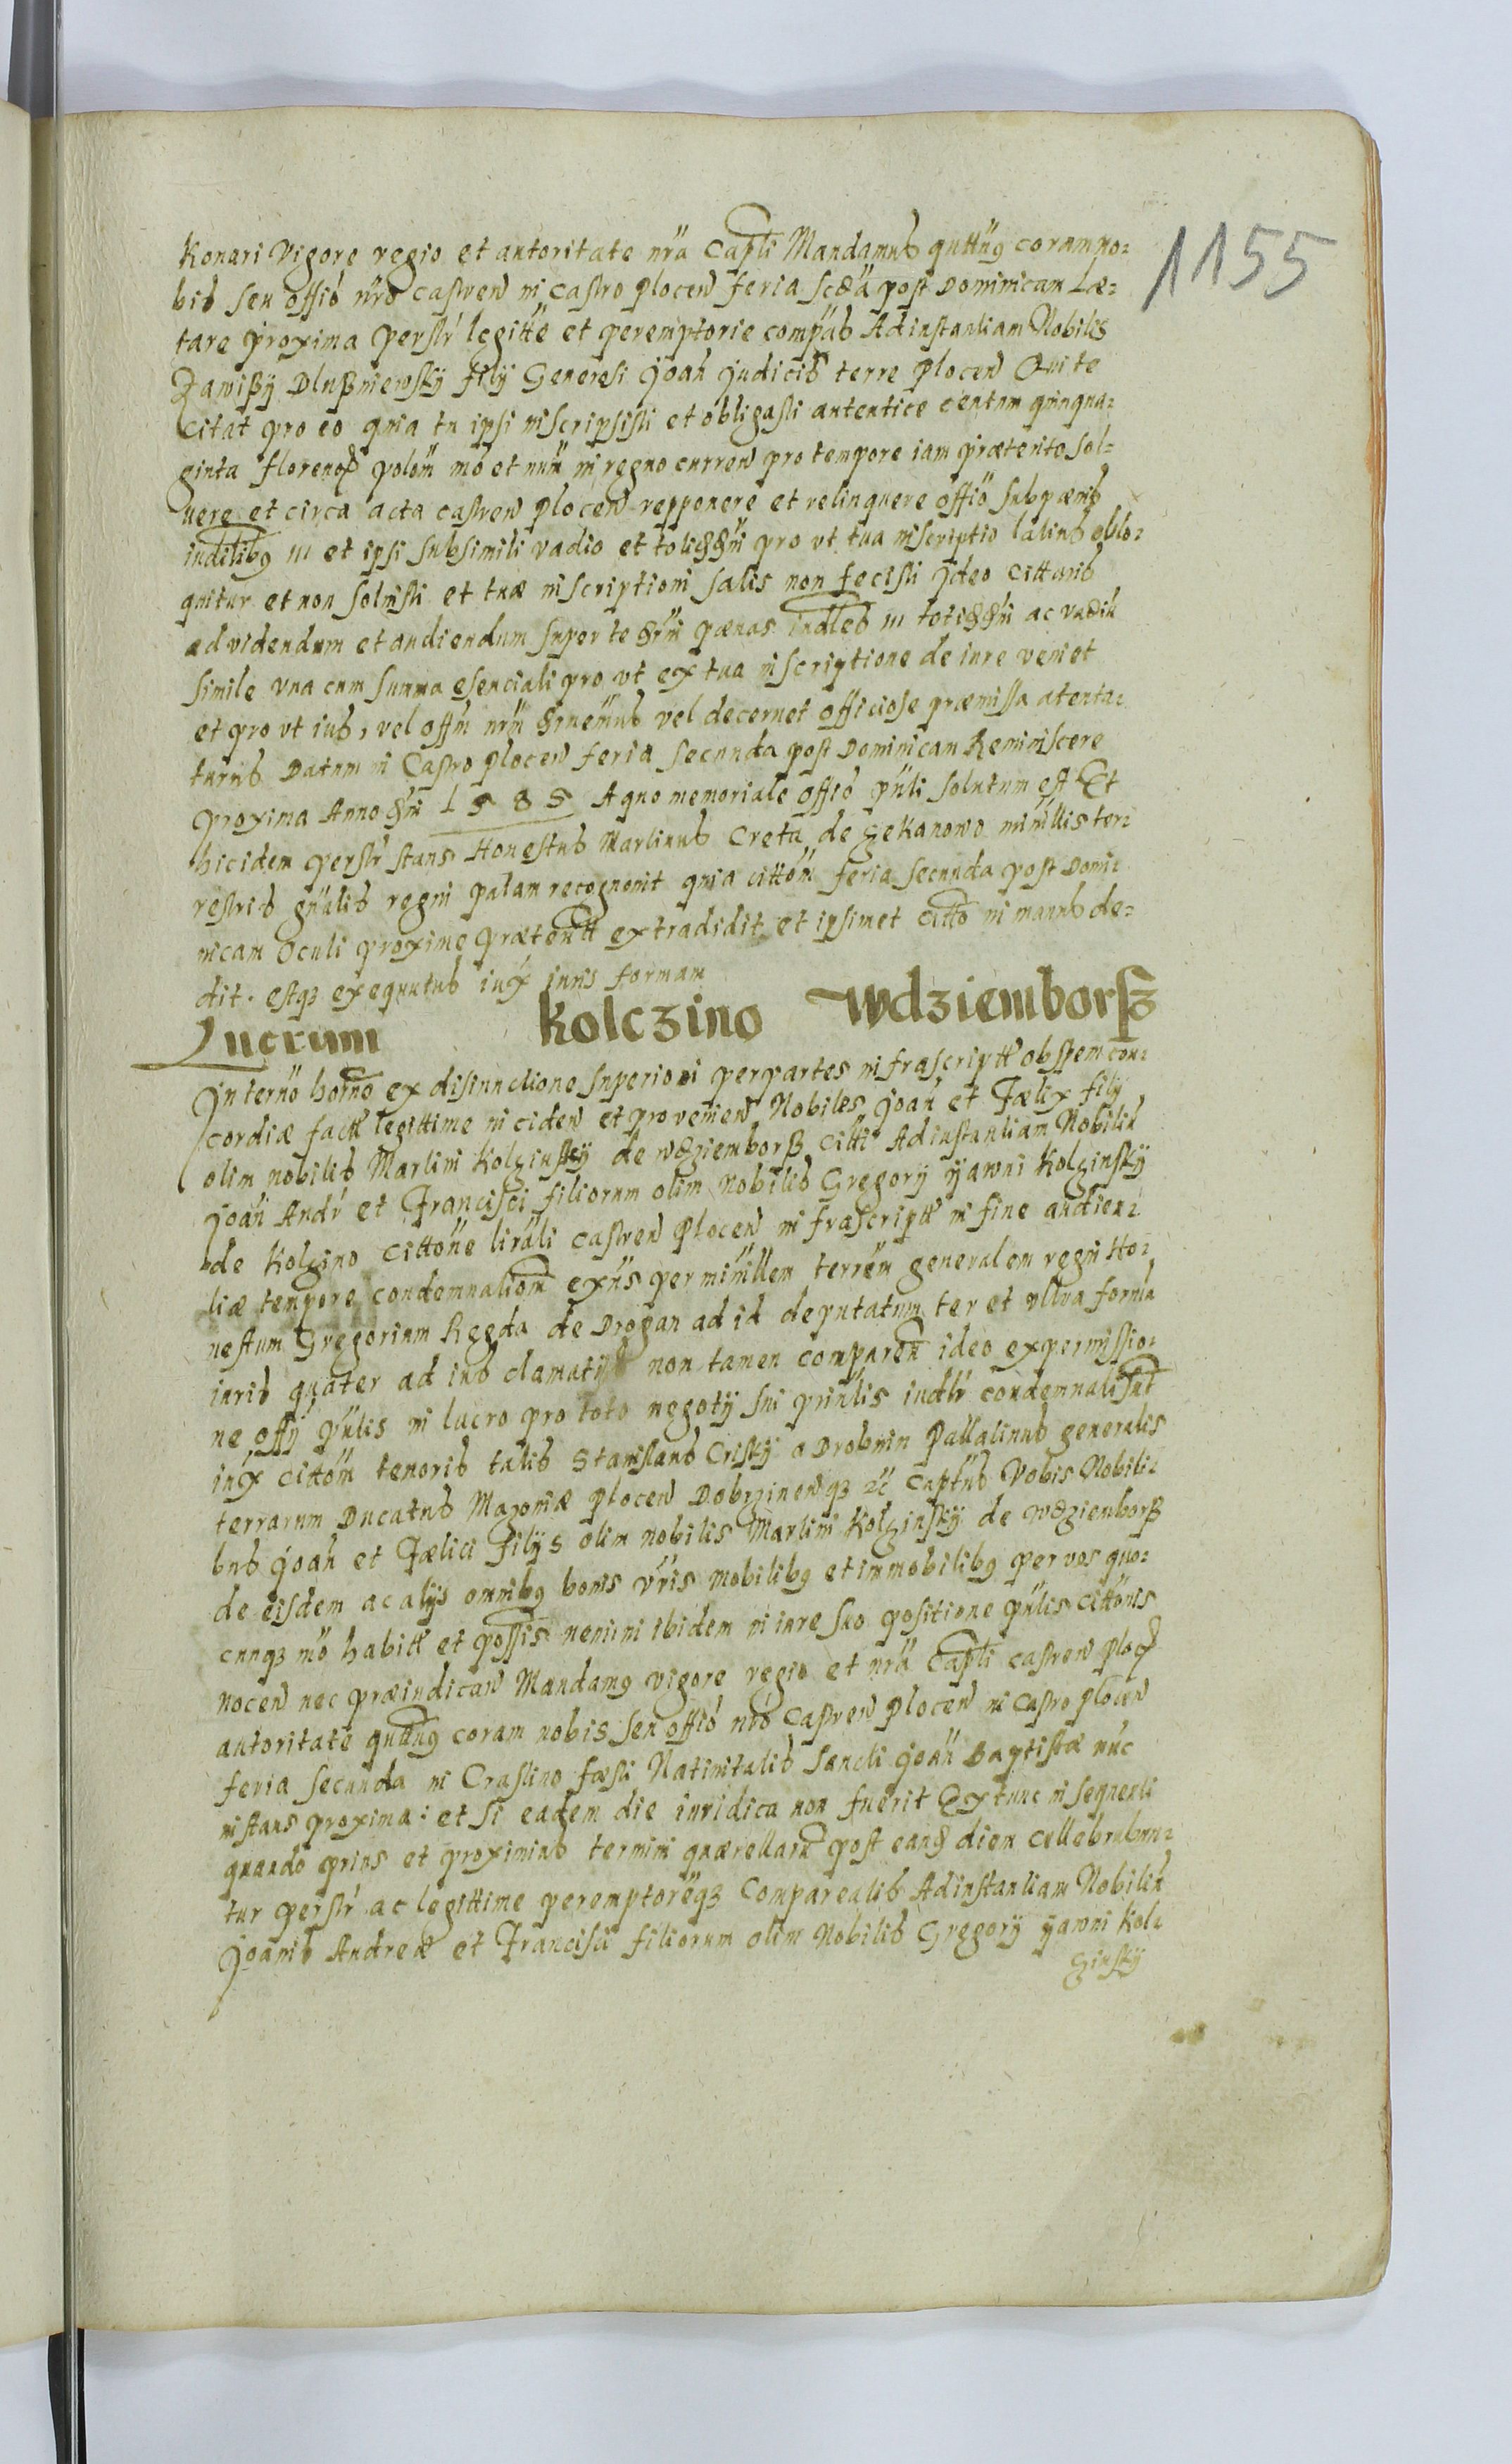 1155
Konari Vigore regio et autoritate nrã Capti Mandamus quttũq coram no=
bis seu offió nró castreñ in castro ploceñ feria scďa post Dominicam Læ=
tare proxima perslr legitté et peremptorie compās Ad instantiam Nobilis
Zawißÿ Dlußniewskÿ filÿ Generosi Joañ Judicis terre ploceñ Qui te
citat pro eo quia tu ipsi inscripsisti et obligasti autentice centum quinqua=
ginta floreno polom mõ et num in regno curreñ pro tempore iam præterito sol=
uere et circa acta castreñ ploceñ repponere et relinquere offiõ sub pœnis
indilibq 111 et ipsi sub simili vadio et pro vt tua inscriptio latius ello=
quitur et non soluisti et tuæ inscriptioni satis non fecisti Ideo cittaris
ad videndum et audiendum super te pœnas indleb 111 ac vadiũ
simile vna cum summa esenciali pro vt ex tua inscriptione de iure veniet
et pro vt ius, vel offm nrm vel decernet officiose præmissa atenta=
turus Datum in Castro ploceñ feria secunda post Dominicam Reminiscere
proxima Anno 1585 A quo memoriale offió pñli solutum est Et
hic idem perslr stans Honestus Martinus Creta de Sekanowo minillis ter=
restris gñalis regni palam recognouit quia cittom feria secunda post Domi=
nicam Oculi proxime præteritt extradidit et ipsimet citto in manus de=
dit. estqz exequutus iux iuris formam
Lucrum Kolczino Wdziemborsz
In terno horno ex disiunctione superiori per partes infrascriptt ob spem con=
cordiæ factt legittime inciden et proveniẽ Nobiles Joañ et Fælix filÿ
olim nobilis Martini Kolzinskÿ de wdziemborß citti Ad instantiam Nobiliũ
Joañ Andr et Francisci filiorum olim Nobilis Gregorÿ ÿawni Kolzinskÿ
de Kolzino cittone lirali castreñ ploceñ infrascriptt in fine audien=
tiæ tempore condemnationi exñs per minillem terrem generalem regni Ho=
nestum Gregorium Regda de Drogan ad id deputatum ter et vltra forma
iuris quater ad ius clamati non tamen compareñ ideo ex permissio=
ne offÿ pñlis in lucro pro toto negotÿ sui prinlis iudlr condemnati sunt
iux cittom tenoris talis Stanislaus Criskÿ a Drobnin Pallatinus generalis
terrarum Ducatus Mazoniæ ploceñ Dobrzineñqz zc captus Vobis Nobili=
bus Joañ et Fælici filÿs olim nobilis Martini Kolzinskÿ de wdziemborß
de eisdem ac alÿs omnibq bonis vris mobilibq et immobilibq per vos quo=
cunqz mõ habitt et possis nemini ibidem in iure suo positione pñlis cittonis
noceñ nec præiudicañ Mandamq vigore regio et nrã Capti castreñ
autoritate quttũq coram nobis seu offió nró castreñ ploceñ in Castro ploceñ
feria secunda in Crastino fæsti Natiuitatis Sancti Joañ Baptistæ nũc
instans proxima: et si eadem die iuridica non fuerit Extunc in sequenti
quando prius et proximius termini quærellarũ post eand diem cellebrabun=
tur perslr ac legittime peremptorẽqz Compareatis Ad instantiam Nobiliũ
Joanis Andreæ et Francisci filiorum olim Nobilis Gregorÿ ÿawni Kol=
zinskÿ